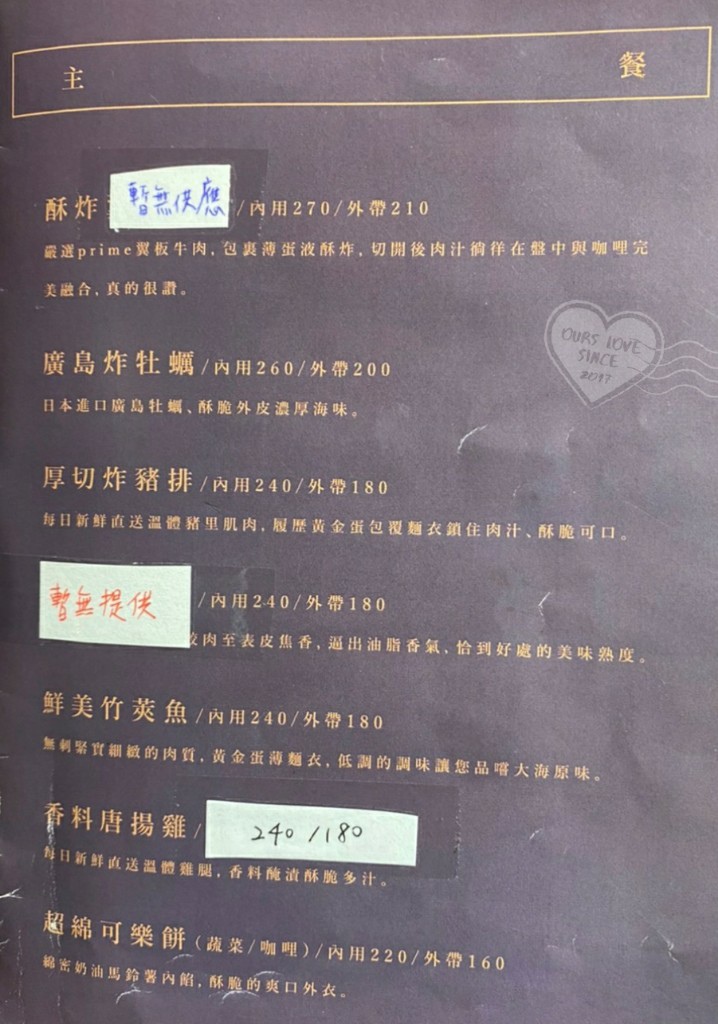 主 餐
酥炸 暫無供應 /內用270/外帶210
嚴選prime翼板牛肉,包裹薄蛋液酥炸,切開後肉汁徜徉在盤中與咖哩完
美融合,真的很讚。
OURS LOVE
SINCE
2017
廣島炸牡蠣/內用260/外帶200
日本進口廣島牡蠣、酥脆外皮濃厚海味。
厚切炸豬排/內用240/外帶180
每日新鮮直送溫體豬里肌肉,履歷黃金蛋包覆麵衣鎖住肉汁、酥脆可口。
暫無提供 /內用240/外帶180
肉至表皮焦香,逼出油脂香氣,恰到好處的美味熟度。
鮮美竹莢魚/內用240/外帶180
無刺緊實細緻的肉質,黃金蛋薄麵衣,低調的調味讓您品嚐大海原味。
香料唐揚雞/ 240/180
每日新鮮直送溫體雞腿,香料醃漬酥脆多汁。
超綿可樂餅(蔬菜/咖哩)/內用220/外帶160
綿密奶油馬鈴薯內餡,酥脆的爽口外衣。